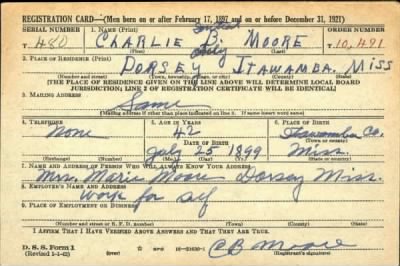 REGISTRATION CARD—(Men born on or after February 17, 1897 and on or before December 31, 1921)
SERIAL NUMBER 1. NAME (Print) ORDER NUMBER
T 480 CHARLIE B. MOORE T 10,491
(First) (Middle) (Last)
only
2. PLACE OF RESIDENCE (Print)
DORSEY ITAWAMBA. MISS
(Number and street) (Town, township, village, or city) (County) (State)
[THE PLACE OF RESIDENCE GIVEN ON THE LINE ABOVE WILL DETERMINE LOCAL BOARD
JURISDICTION; LINE 2 OF REGISTRATION CERTIFICATE WILL BE IDENTICAL]
3. MAILING ADDRESS
Same
[Mailing address if other than place indicated on line 2. If same insert word same]
4. TELEPHONE 5. AGE IN YEARS 6. PLACE OF BIRTH
None 42 Itawamba Co.
DATE OF BIRTH (Town or county)
July 25 1899 Miss.
(Exchange) (Number) (Mo.) (Day) (Yr.) (State or country)
7. NAME AND ADDRESS OF PERSON WHO WILL ALWAYS KNOW YOUR ADDRESS
Mrs. Marie Moore Dorsey Miss.
8. EMPLOYER'S NAME AND ADDRESS
Work for self
9. PLACE OF EMPLOYMENT OR BUSINESS
(Number and street or R. F. D. number) (Town) (County) (State)
I AFFIRM THAT I HAVE VERIFIED ABOVE ANSWERS AND THAT THEY ARE TRUE.
D. S. S. Form 1
(Revised 1-1-42) GPO 16-21630-1 C B Moore
(Registrant's signature)